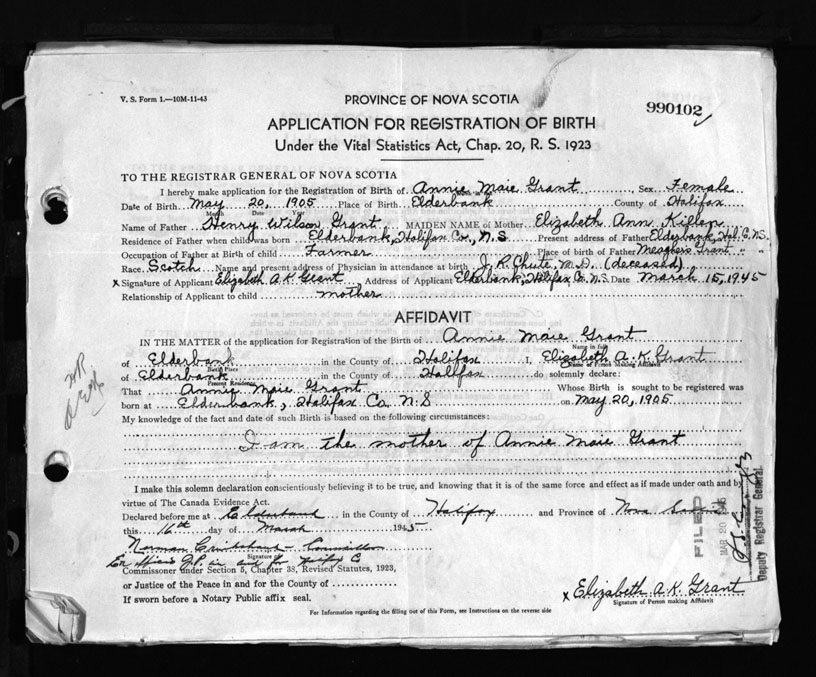 V. S. Form 1.—10M-11-43
PROVINCE OF NOVA SCOTIA
990102
APPLICATION FOR REGISTRATION OF BIRTH
Under the Vital Statistics Act, Chap. 20, R. S. 1923
TO THE REGISTRAR GENERAL OF NOVA SCOTIA
I hereby make application for the Registration of Birth of Annie Maie Grant, Sex Female
Date of Birth May 20, 1905 Place of Birth Elderbank County of Halifax
Month Date Year
Name of Father Henry Wilson Grant MAIDEN NAME of Mother Elizabeth Ann Killen
Residence of Father when child was born Elderbank, Halifax Co., N.S Present address of Father Elderbank, Hal. C. N.S.
Occupation of Father at Birth of child Farmer Place of birth of Father Meaghers Grant " "
Race Scotch Name and present address of Physician in attendance at birth J. R. Chute, M.D. (deceased)
x Signature of Applicant Elizabeth A K Grant Address of Applicant Elderbank, Halifax Co. N.S. Date March 15, 1945
Relationship of Applicant to child mother
AFFIDAVIT
IN THE MATTER of the application for Registration of the Birth of Annie Maie Grant
Name in full
of Elderbank in the County of Halifax I, Elizabeth A. K. Grant
Birth Place Name of Person Making Affidavit
of Elderbank in the County of Halifax do solemnly declare:
Present Residence
That Annie Maie Grant Whose Birth is sought to be registered was
born at Elderbank, Halifax Co. N.S on May 20, 1905
My knowledge of the fact and date of such Birth is based on the following circumstances:
I am the mother of Annie Maie Grant
I make this solemn declaration conscientiously believing it to be true, and knowing that it is of the same force and effect as if made under oath and by
virtue of The Canada Evidence Act.
Declared before me at Elderbank in the County of Halifax and Province of Nova Scotia
this 16th day of March 1945
Norman Councillor
Signature of
Ex Officio J.P. in and for Halifax C
Commissioner under Section 5, Chapter 38, Revised Statutes, 1923,
or Justice of the Peace in and for the County of
If sworn before a Notary Public affix seal.
x Elizabeth A. K. Grant
Signature of Person making Affidavit
For Information regarding the filling out of this Form, see Instructions on the reverse side
FILED
MAR 20 1945
Deputy Registrar General